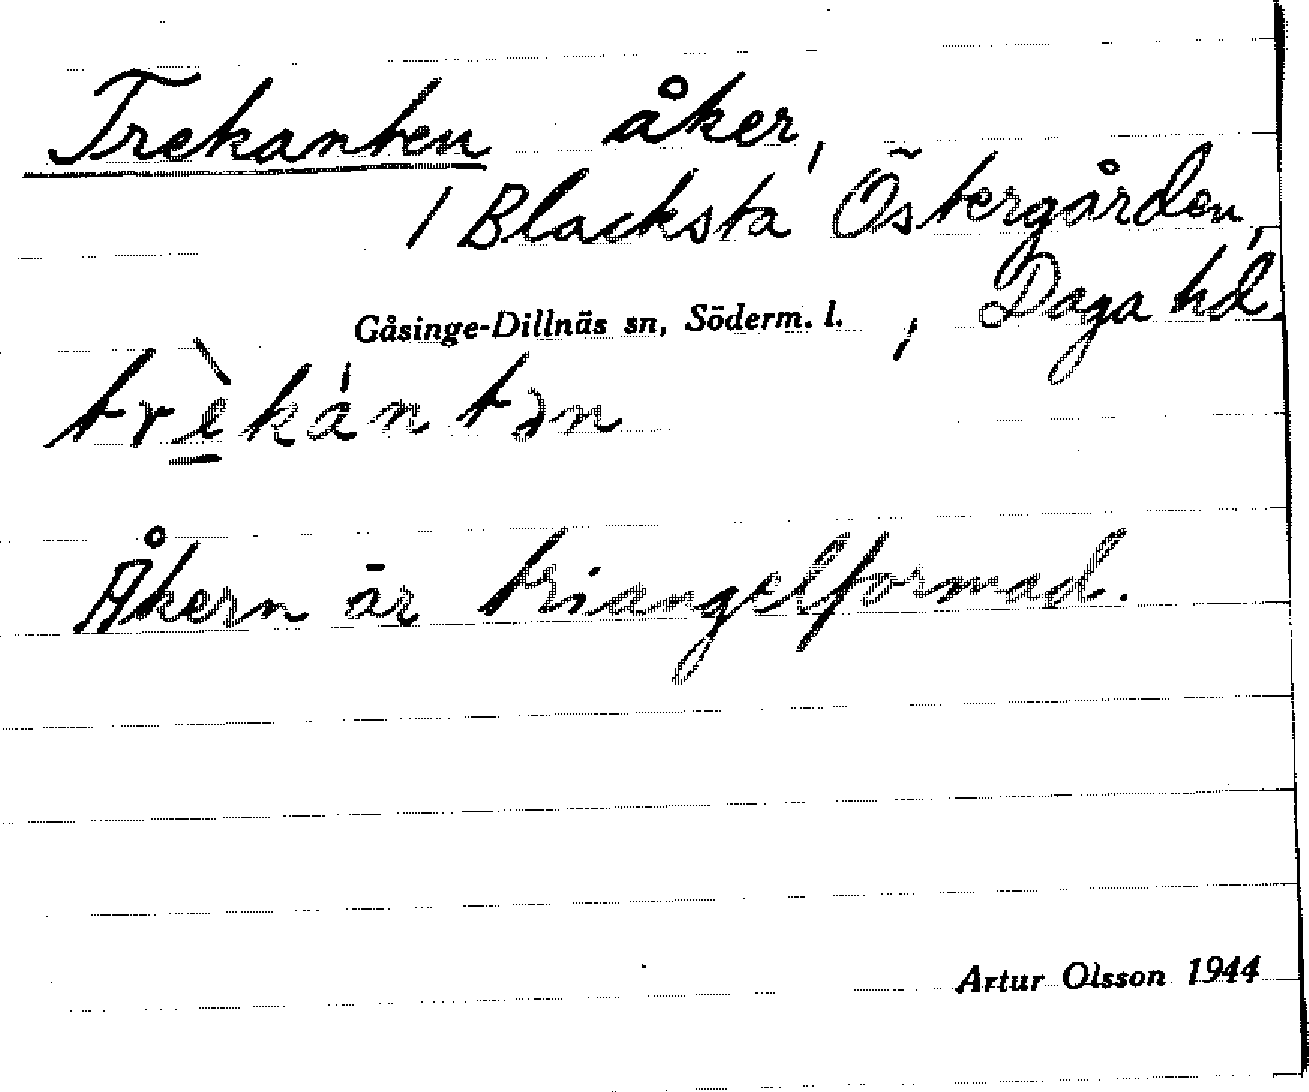 Trekanten åker,
/ Blacksta Östergården,
Gåsinge-Dillnäs sn, Söderm. l. , Daga hd.
trè̱kántən
Åkern är triangelformad.
Artur Olsson 1944